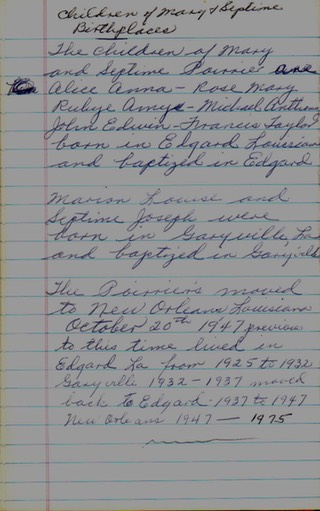 Children of Mary & Septime
Birthplaces
The Children of Mary
and Septime Poirrier are
Alice Anna - Rose Mary
Rubye Amy - Michael Anthony
John Edwin - Francis Taylor
born in Edgard Louisiana
and baptized in Edgard
Marion Louise and
Septime Joseph were
born in Garyville, La
and baptized in Garyville
The Poirrier's moved
to New Orleans Louisiana
October 20th 1947 previous
to this time lived in
Edgard La from 1925 to 1932
Garyville 1932 - 1937 moved
back to Edgard 1937 to 1947
New Orleans 1947 — 1975